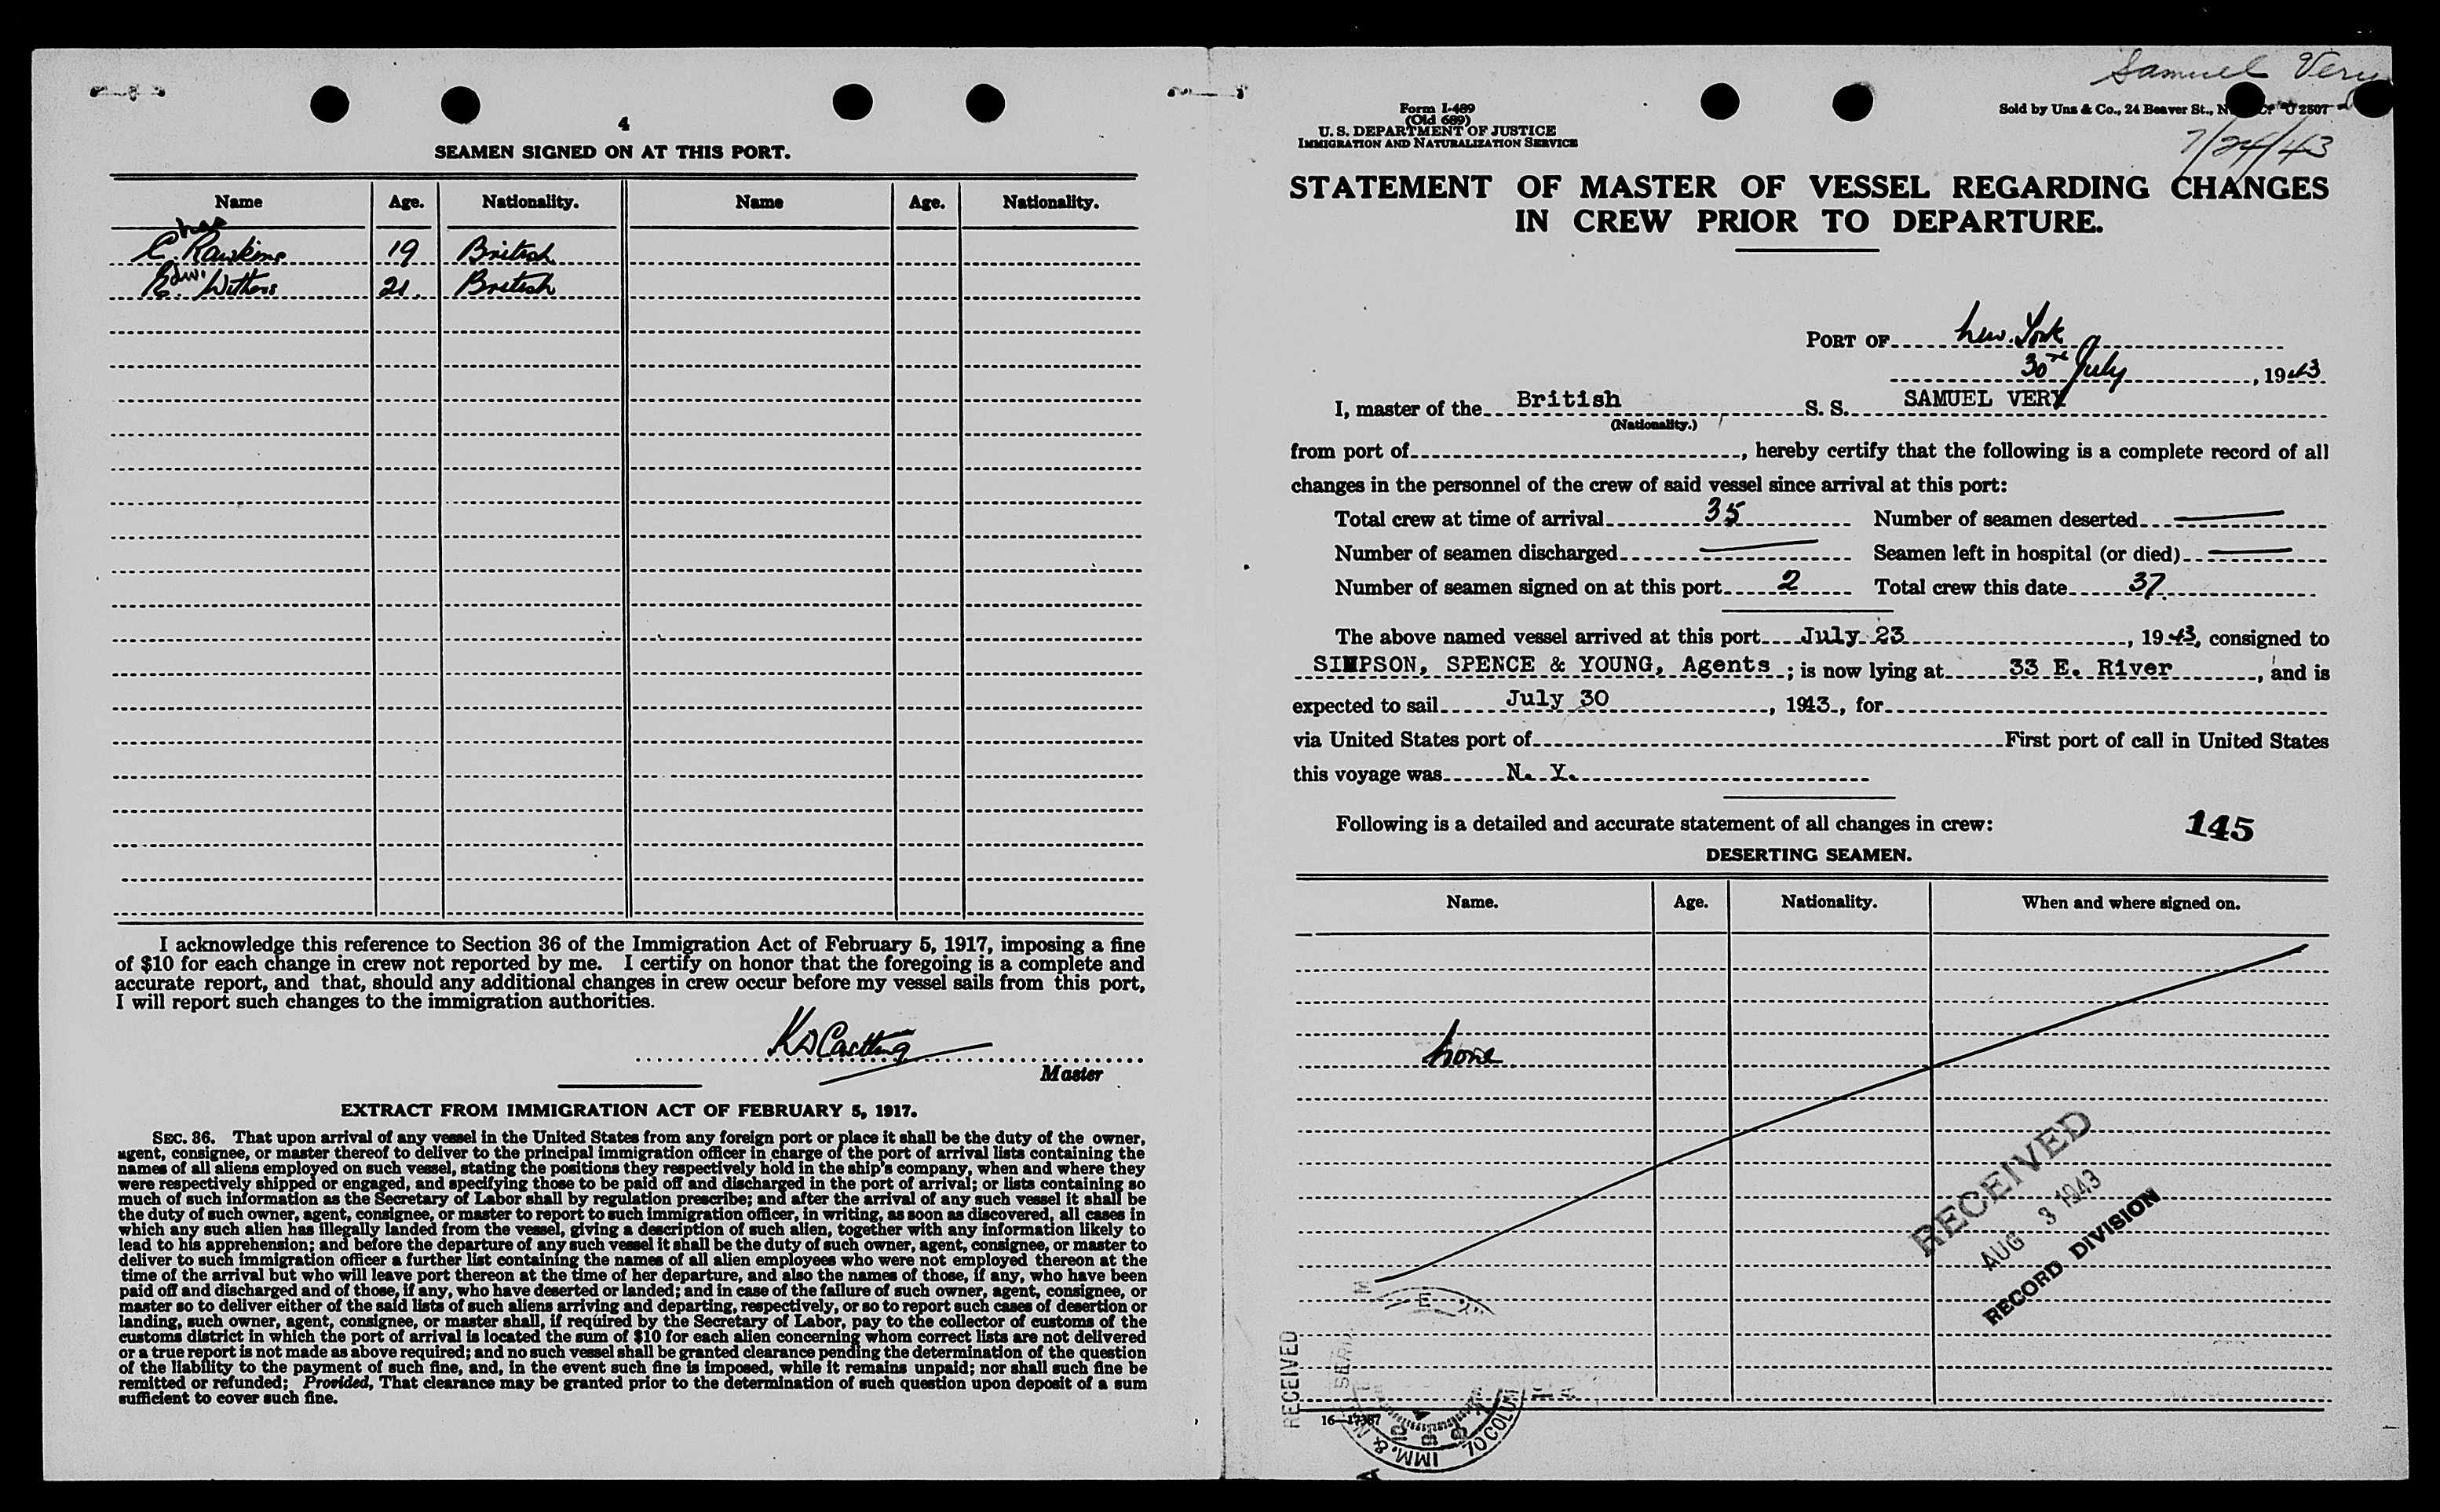 4
SEAMEN SIGNED ON AT THIS PORT.
Name Age. Nationality. Name Age. Nationality.
Chas
C. Rawkins 19 British
Edw. Withers 21. British
I acknowledge this reference to Section 36 of the Immigration Act of February 5, 1917, imposing a fine
of $10 for each change in crew not reported by me. I certify on honor that the foregoing is a complete and
accurate report, and that, should any additional changes in crew occur before my vessel sails from this port,
I will report such changes to the immigration authorities.
Master
EXTRACT FROM IMMIGRATION ACT OF FEBRUARY 5, 1917.
SEC. 36. That upon arrival of any vessel in the United States from any foreign port or place it shall be the duty of the owner,
agent, consignee, or master thereof to deliver to the principal immigration officer in charge of the port of arrival lists containing the
names of all aliens employed on such vessel, stating the positions they respectively hold in the ship's company, when and where they
were respectively shipped or engaged, and specifying those to be paid off and discharged in the port of arrival; or lists containing so
much of such information as the Secretary of Labor shall by regulation prescribe; and after the arrival of any such vessel it shall be
the duty of such owner, agent, consignee, or master to report to such immigration officer, in writing, as soon as discovered, all cases in
which any such alien has illegally landed from the vessel, giving a description of such alien, together with any information likely to
lead to his apprehension; and before the departure of any such vessel it shall be the duty of such owner, agent, consignee, or master to
deliver to such immigration officer a further list containing the names of all alien employees who were not employed thereon at the
time of the arrival but who will leave port thereon at the time of her departure, and also the names of those, if any, who have been
paid off and discharged and of those, if any, who have deserted or landed; and in case of the failure of such owner, agent, consignee, or
master so to deliver either of the said lists of such aliens arriving and departing, respectively, or so to report such cases of desertion or
landing, such owner, agent, consignee, or master shall, if required by the Secretary of Labor, pay to the collector of customs of the
customs district in which the port of arrival is located the sum of $10 for each alien concerning whom correct lists are not delivered
or a true report is not made as above required; and no such vessel shall be granted clearance pending the determination of the question
of the liability to the payment of such fine, and, in the event such fine is imposed, while it remains unpaid; nor shall such fine be
remitted or refunded; Provided, That clearance may be granted prior to the determination of such question upon deposit of a sum
sufficient to cover such fine.
Samuel Very
Form I-489
(Old 689)
U. S. DEPARTMENT OF JUSTICE
IMMIGRATION AND NATURALIZATION SERVICE
Sold by Uns & Co., 24 Beaver St., N 2507
7/24/43
STATEMENT OF MASTER OF VESSEL REGARDING CHANGES
IN CREW PRIOR TO DEPARTURE.
PORT OF New York
30th July, 1943
I, master of the British S. S. SAMUEL VERY
(Nationality.)
from port of , hereby certify that the following is a complete record of all
changes in the personnel of the crew of said vessel since arrival at this port:
Total crew at time of arrival 35 Number of seamen deserted
Number of seamen discharged Seamen left in hospital (or died)
Number of seamen signed on at this port 2 Total crew this date 37
The above named vessel arrived at this port July 23, 1943, consigned to
SIMPSON, SPENCE & YOUNG, Agents ; is now lying at 33 E. River, and is
expected to sail July 30, 1943, for
via United States port of First port of call in United States
this voyage was N. Y.
Following is a detailed and accurate statement of all changes in crew:
145
DESERTING SEAMEN.
Name. Age. Nationality. When and where signed on.
none
RECEIVED
AUG 3 1943
RECORD DIVISION
RECEIVED
16—17387
IMM. & N
70 COLUM